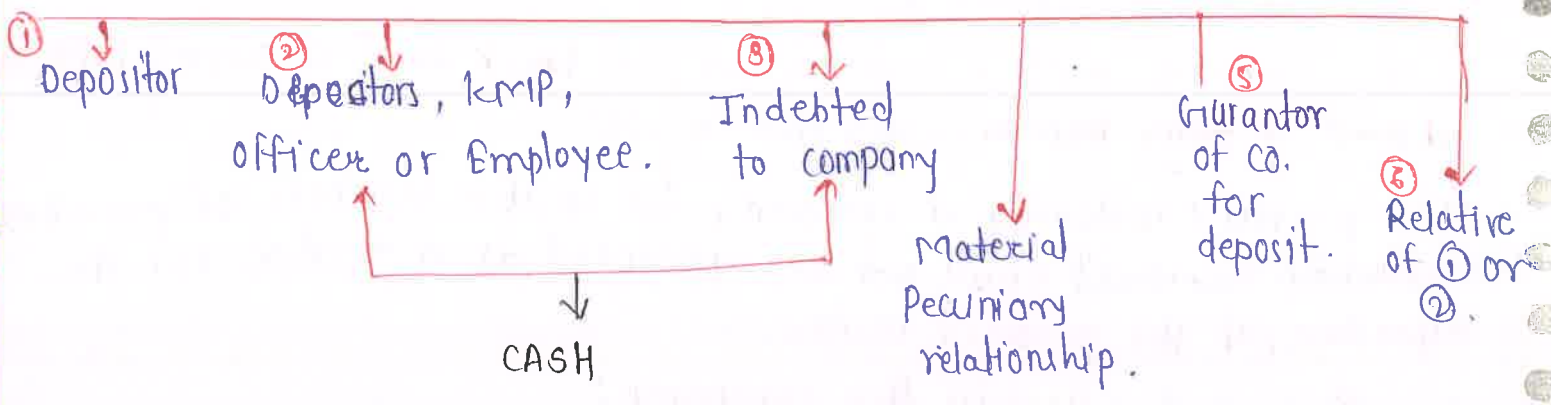 ① Depositor
② Depositors, KMP,
officer or Employee.
③ Indebted
to company
Material
Pecuniary
relationship.
⑤
Gurantor
of co.
for
deposit.
⑥
Relative
of ① or
②.
CASH